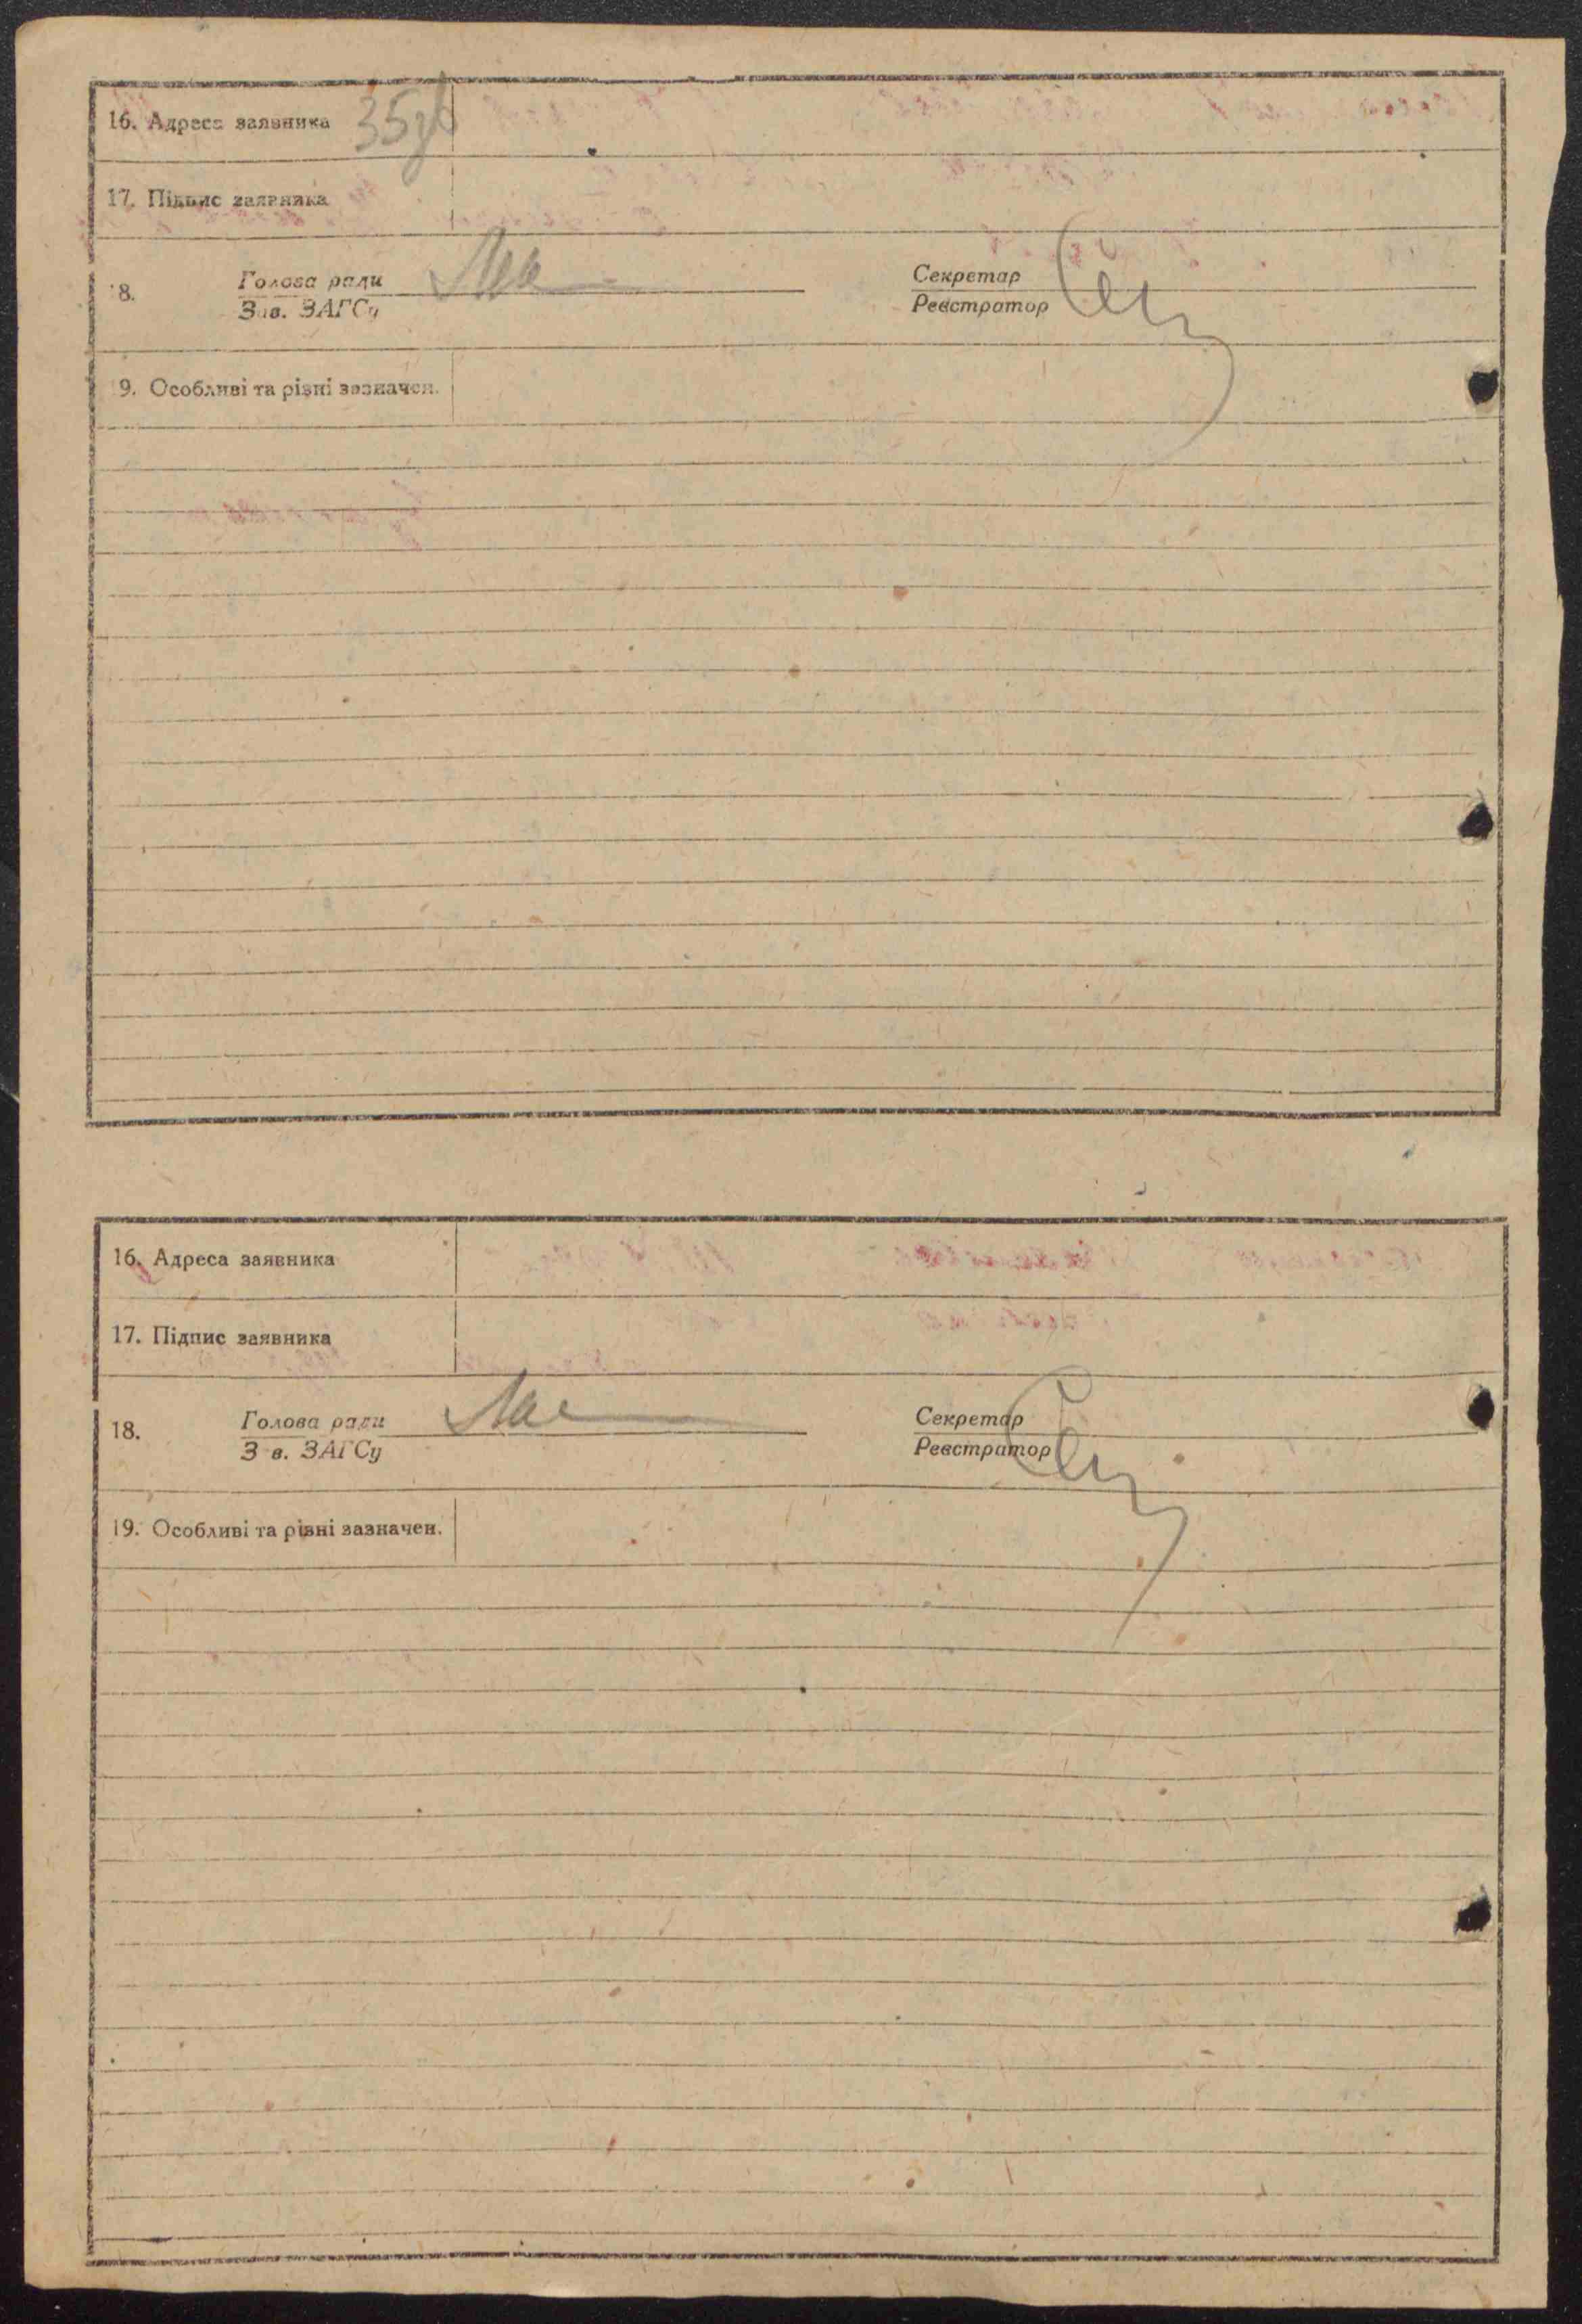 16. Адреса заявника 35
17. Підпис заявника
18. Голова ради Секретар
Зав. ЗАГСу Реєстратор
9. Особливі та різні зазначен.
16. Адреса заявника
17. Підпис заявника
18. Голова ради Секретар
Зав. ЗАГСу Реєстратор
19. Особливі та різні зазначен.